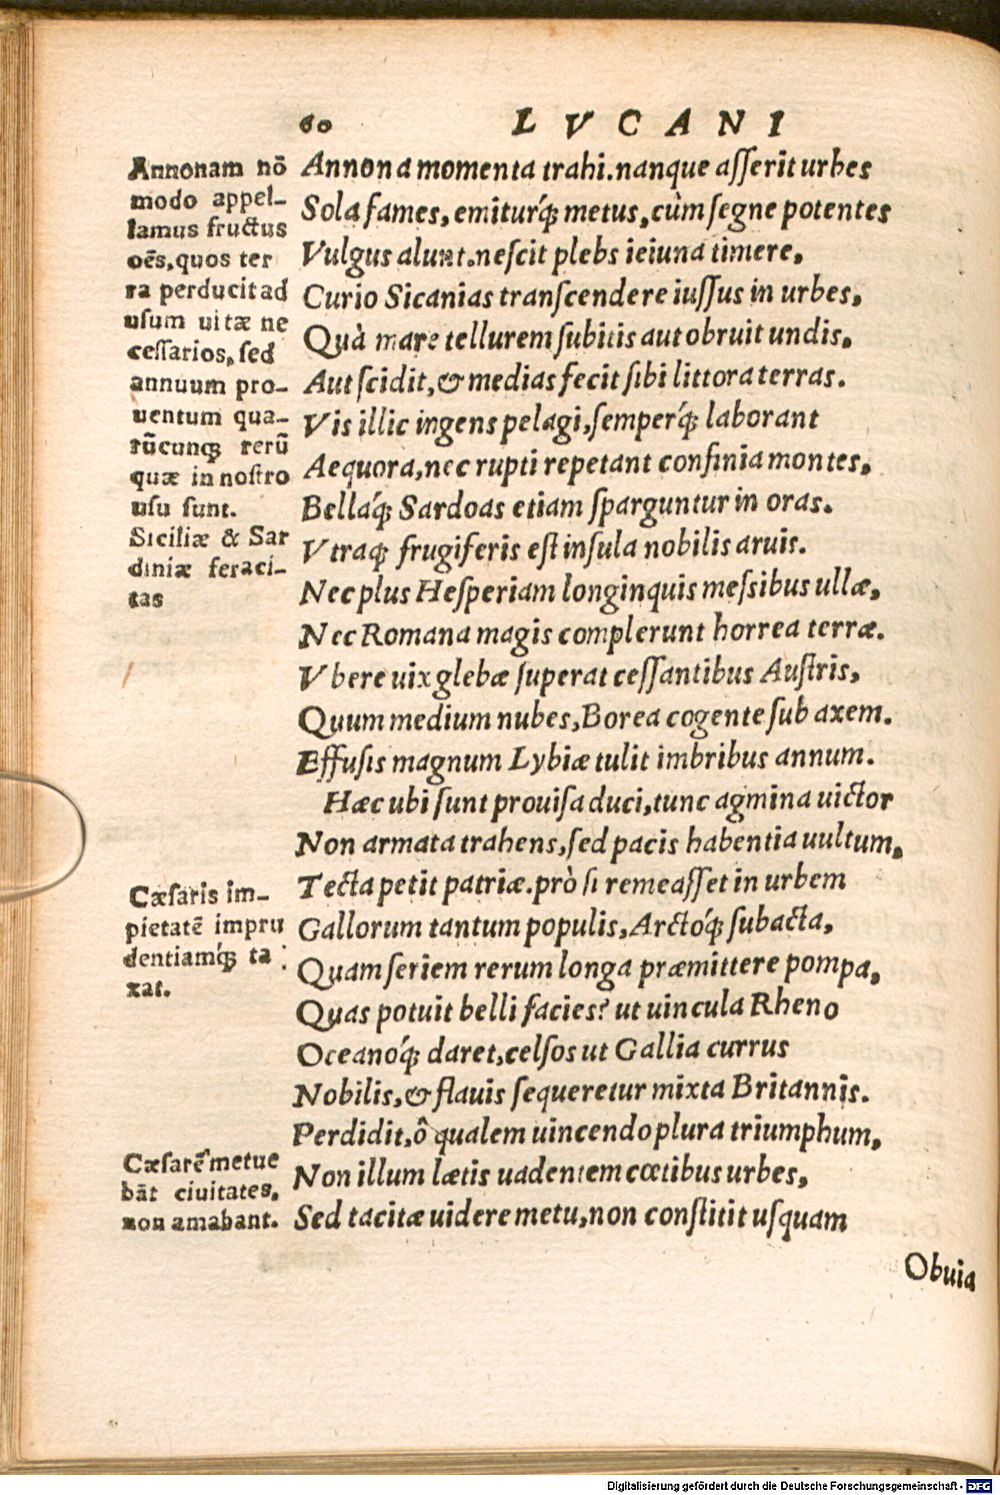 60 LVCANI
Annonam nō
modo appel-
lamus fructus
oēs, quos ter
ra perducit ad
usum uitæ ne
cessarios, sed
annuum pro-
uentum qua-
rūcunq; rerū
quæ in nostro
usu sunt.
Siciliæ & Sar
diniæ feraci-
tas
Cæsaris im-
pietatē impru
dentiamq́; ta
xat.
Cæsarē metue
bāt ciuitates,
non amabant.
Annona momenta trahi. nanque asserit urbes
Sola fames, emiturq́; metus, cùm segne potentes
Vulgus alunt. nescit plebs ieiuna timere,
Curio Sicanias transcendere iussus in urbes,
Quà mare tellurem subitis aut obruit undis,
Aut scidit, & medias fecit sibi littora terras.
Vis illic ingens pelagi, semperq́; laborant
Aequora, nec rupti repetant confinia montes,
Bellaq́; Sardoas etiam sparguntur in oras.
Vtraq; frugiferis est insula nobilis aruis.
Nec plus Hesperiam longinquis messibus ullæ,
Nec Romana magis complerunt horrea terræ.
Vbere uix glebæ superat cessantibus Austris,
Quum medium nubes, Borea cogente sub axem.
Effusis magnum Lybiæ tulit imbribus annum.
Hæc ubi sunt prouisa duci, tunc agmina uictor
Non armata trahens, sed pacis habentia uultum,
Tecta petit patriæ. prò si remeasset in urbem
Gallorum tantum populis, Arctoq́; subacta,
Quam seriem rerum longa præmittere pompa,
Quas potuit belli facies? ut uincula Rheno
Oceanoq́; daret, celsos ut Gallia currus
Nobilis, & flauis sequeretur mixta Britannis.
Perdidit, ô qualem uincendo plura triumphum,
Non illum lætis uadentem cœtibus urbes,
Sed tacitæ uidere metu, non constitit usquam
Obuia
Digitalisierung gefördert durch die Deutsche Forschungsgemeinschaft - DFG